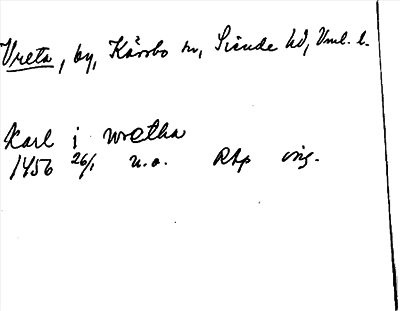 Vreta, by, Kärrbo sn, Siende hd, Vml. l.
Karl i wretha
1456 26/1 u.o. RAp orig.